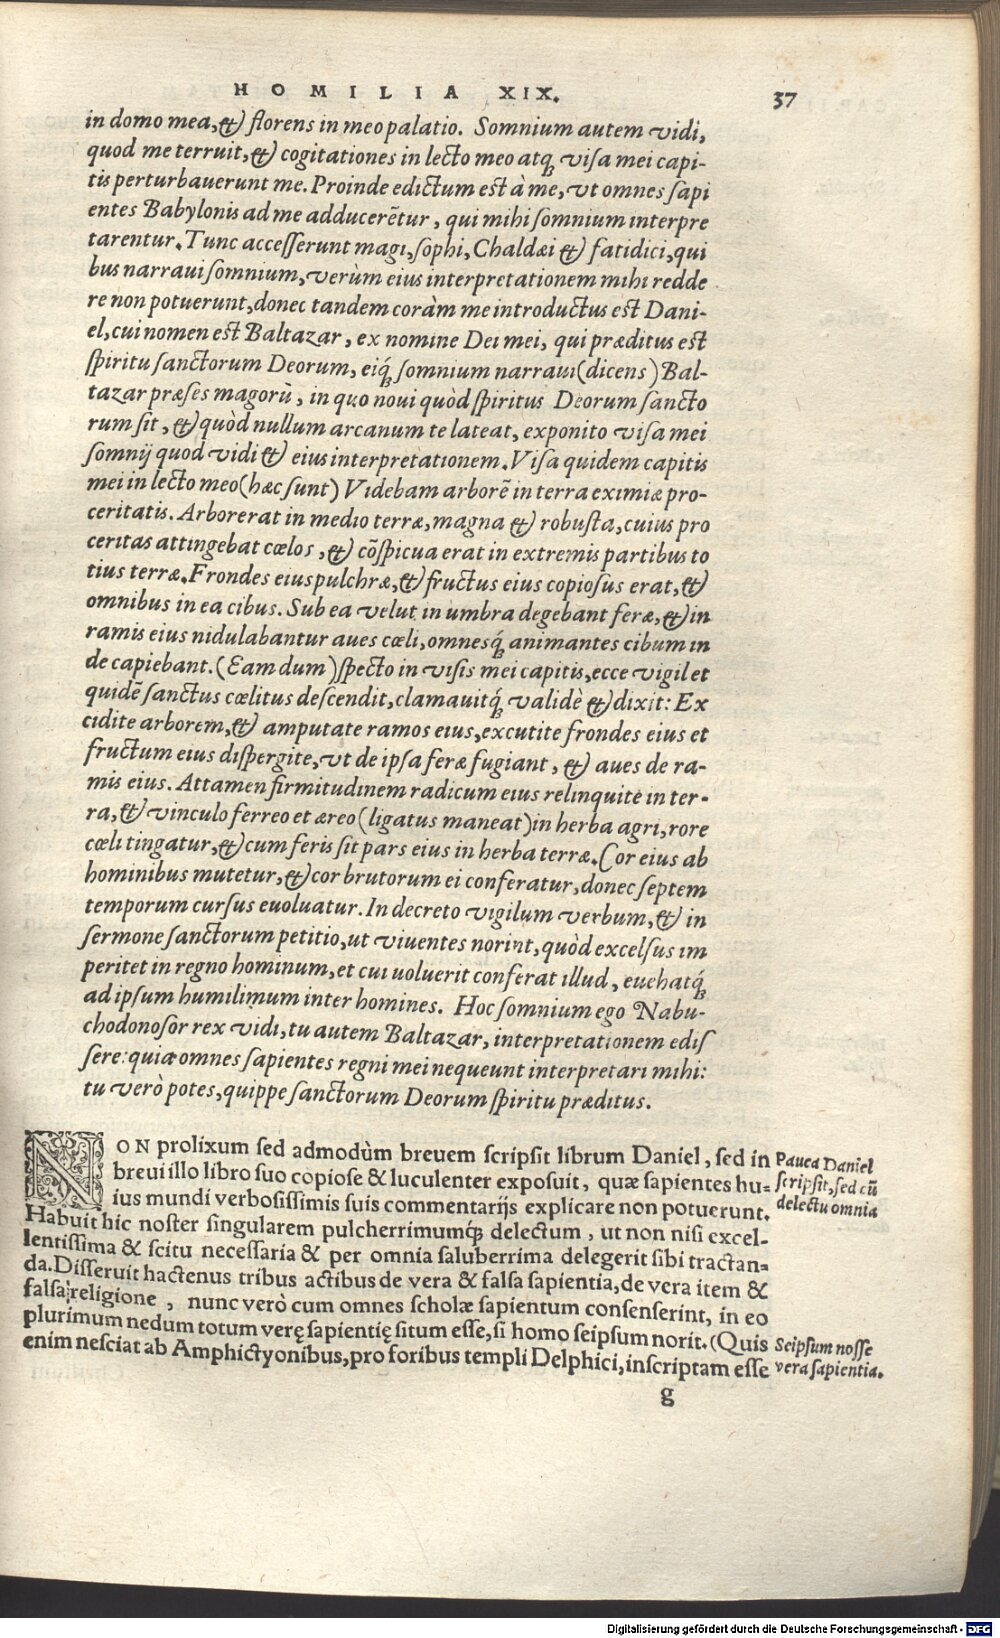 HOMILIA XIX. 37
in domo mea, & florens in meo palatio. Somnium autem vidi,
quod me terruit, & cogitationes in lecto meo atq; visa mei capi-
tis perturbauerunt me. Proinde edictum est à me, vt omnes sapi
entes Babylonis ad me adducerẽtur, qui mihi somnium interpre
tarentur. Tunc accesserunt magi, sophi, Chaldæi & fatidici, qui
bus narraui somnium, verùm eius interpretationem mihi redde
re non potuerunt, donec tandem coràm me introductus est Dani-
el, cui nomen est Baltazar, ex nomine Dei mei, qui præditus est
spiritu sanctorum Deorum, eiq́; somnium narraui (dicens) Bal-
tazar præses magorũ, in quo noui quòd spiritus Deorum sancto
rum sit, & quòd nullum arcanum te lateat, exponito visa mei
somnij quod vidi & eius interpretationem. Visa quidem capitis
mei in lecto meo (hæc sunt) Videbam arborẽ in terra eximiæ pro-
ceritatis. Arbor erat in medio terræ, magna & robusta, cuius pro
ceritas attingebat cœlos, & cõspicua erat in extremis partibus to
tius terræ. Frondes eius pulchræ, & fructus eius copiosus erat, &
omnibus in ea cibus. Sub ea velut in umbra degebant feræ, & in
ramis eius nidulabantur aues cœli, omnesq́; animantes cibum in
de capiebant. (Eam dum) specto in visis mei capitis, ecce vigil et
quidẽ sanctus cœlitus descendit, clamauitq́; validè & dixit: Ex
cidite arborem, & amputate ramos eius, excutite frondes eius et
fructum eius dispergite, vt de ipsa feræ fugiant, & aues de ra-
mis eius. Attamen firmitudinem radicum eius relinquite in ter-
ra, & vinculo ferreo et æreo (ligatus maneat) in herba agri, rore
cœli tingatur, & cum feris sit pars eius in herba terræ. Cor eius ab
hominibus mutetur, & cor brutorum ei conferatur, donec septem
temporum cursus euoluatur. In decreto vigilum verbum, & in
sermone sanctorum petitio, ut viuentes norint, quòd excelsus im
peritet in regno hominum, et cui uoluerit conferat illud, euehatq́;
ad ipsum humilimum inter homines. Hoc somnium ego Nabu-
chodonosor rex vidi, tu autem Baltazar, interpretationem edis
sere: quia omnes sapientes regni mei nequeunt interpretari mihi:
tu verò potes, quippe sanctorum Deorum spiritu præditus.
NON prolixum sed admodùm breuem scripsit librum Daniel, sed in
breui illo libro suo copiose & luculenter exposuit, quæ sapientes hu-
ius mundi verbosissimis suis commentarijs explicare non potuerunt.
Pauca Daniel
scripsit, sed cũ
delectu omnia
Habuit hic noster singularem pulcherrimumq́; delectum, ut non nisi excel-
lentissima & scitu necessaria & per omnia saluberrima delegerit sibi tractan-
da. Disseruit hactenus tribus actibus de vera & falsa sapientia, de vera item &
falsa religione, nunc verò cum omnes scholæ sapientum consenserint, in eo
plurimum nedum totum verę sapientię situm esse, si homo seipsum norit. (Quis
enim nesciat ab Amphictyonibus, pro foribus templi Delphici, inscriptam esse
Seipsum nosse
vera sapientia.
g
Digitalisierung gefördert durch die Deutsche Forschungsgemeinschaft - DFG